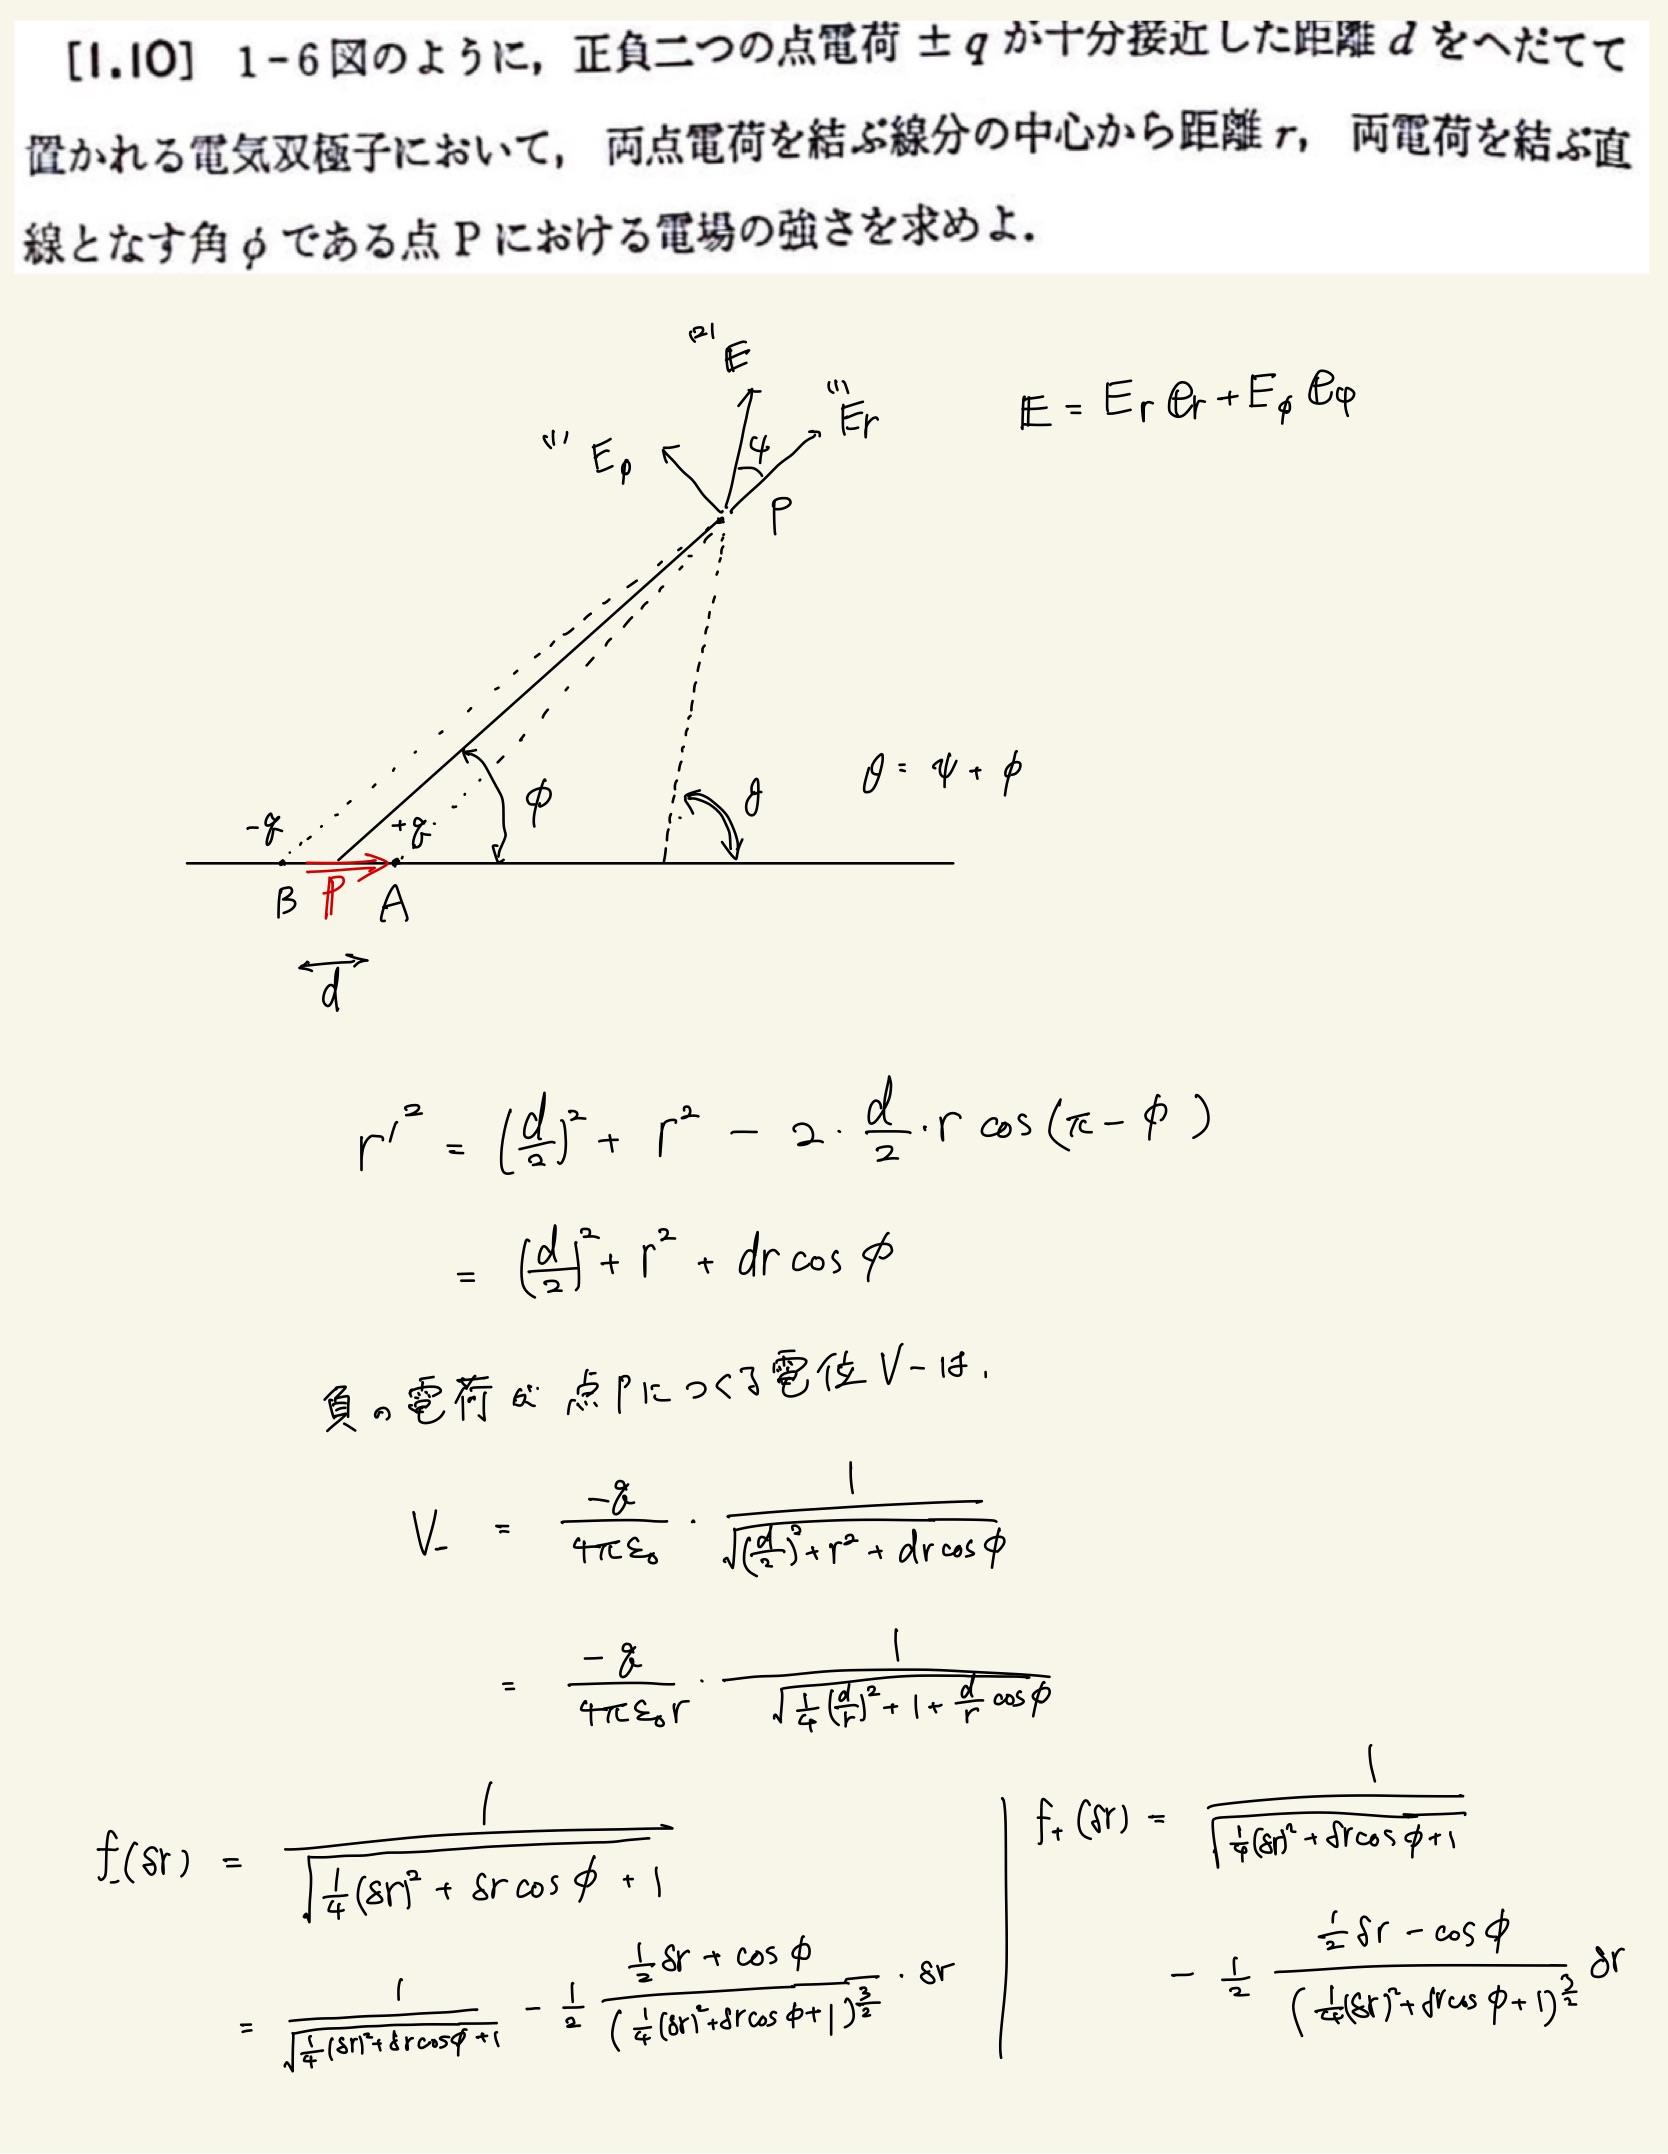 [1.10] 1-6図のように，正負二つの点電荷 ±q が十分接近した距離 d をへだてて
置かれる電気双極子において，両点電荷を結ぶ線分の中心から距離 r，両電荷を結ぶ直
線となす角 φ である点 P における電場の強さを求めよ．
(2) E
(1) Er
(1) Eφ
ψ
P
E = Er er + Eφ eφ
φ
θ
θ = ψ + φ
-q
+q
B
P
A
d
r'² = (d/2)² + r² - 2・d/2・r cos(π - φ)
= (d/2)² + r² + dr cos φ
負の電荷が点Pにつくる電位V-は，
V- = -q/4πε₀ ・ 1/√((d/2)² + r² + dr cos φ)
= -q/4πε₀r ・ 1/√(1/4(d/r)² + 1 + d/r cos φ)
f-(δr) = 1/√(1/4(δr)² + δr cos φ + 1)
= 1/√(1/4(δr)² + δr cos φ + 1) - 1/2 (1/2 δr + cos φ)/(1/4(δr)² + δr cos φ + 1)^(3/2) ・ δr
f+(δr) = 1/√(1/4(δr)² + δr cos φ + 1)
- 1/2 (1/2 δr - cos φ)/(1/4(δr)² + δr cos φ + 1)^(3/2) δr